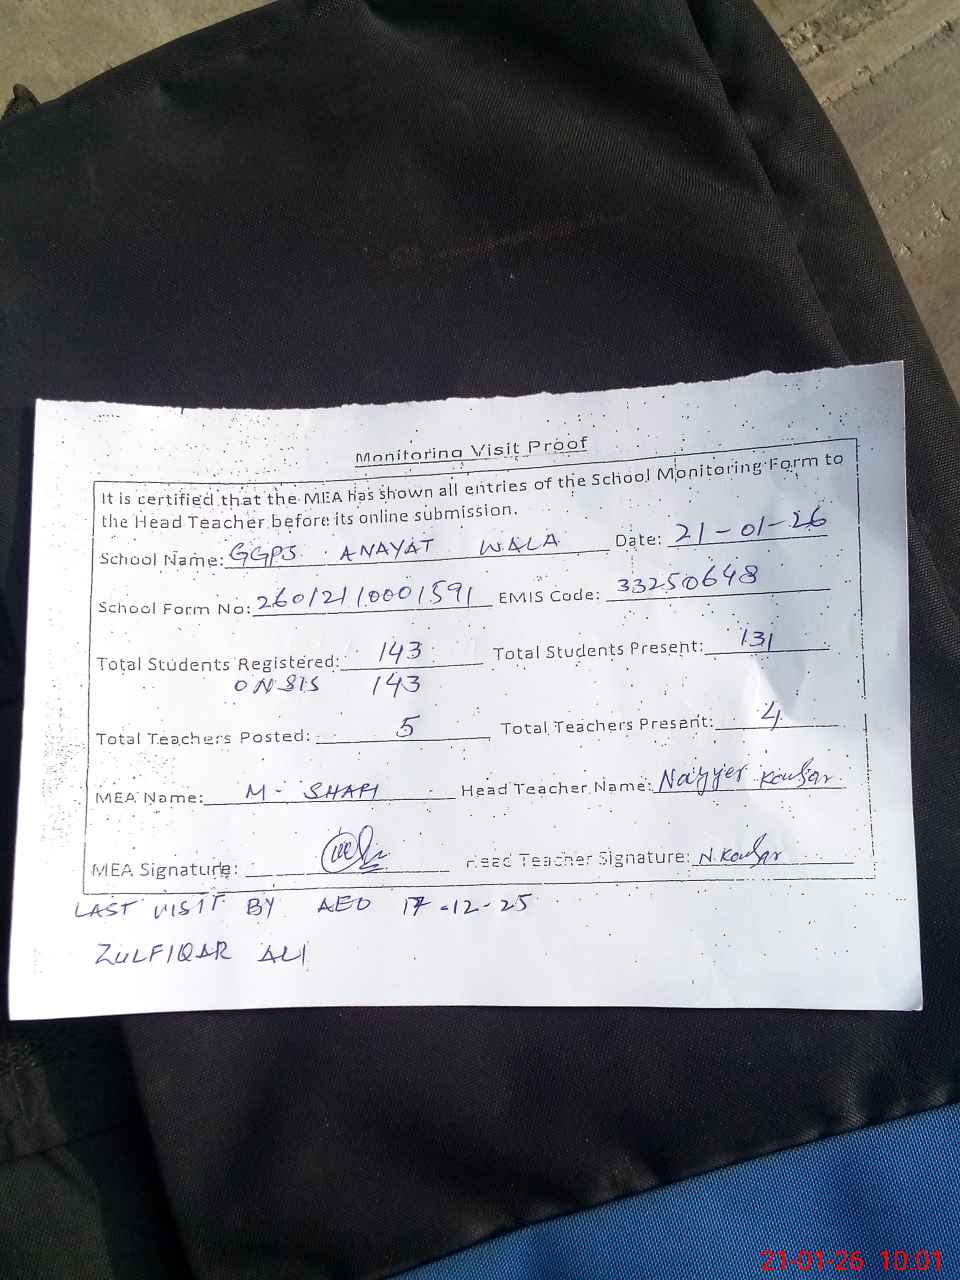 Monitoring Visit Proof
It is certified that the MEA has shown all entries of the School Monitoring Form to
the Head Teacher before its online submission.
School Name: GGPS ANAYAT WALA Date: 21-01-26
School Form No: 26012110001591 EMIS Code: 33250648
Total Students Registered: 143 Total Students Present: 131
ON SIS 143
Total Teachers Posted: 5 Total Teachers Present: 4
MEA Name: M- SHAFI Head Teacher Name: Nayyer Kousar
MEA Signature: Head Teacher Signature: N.Kousar
LAST VISIT BY AEO 17-12-25
ZULFIQAR ALI
21-01-26 10:01